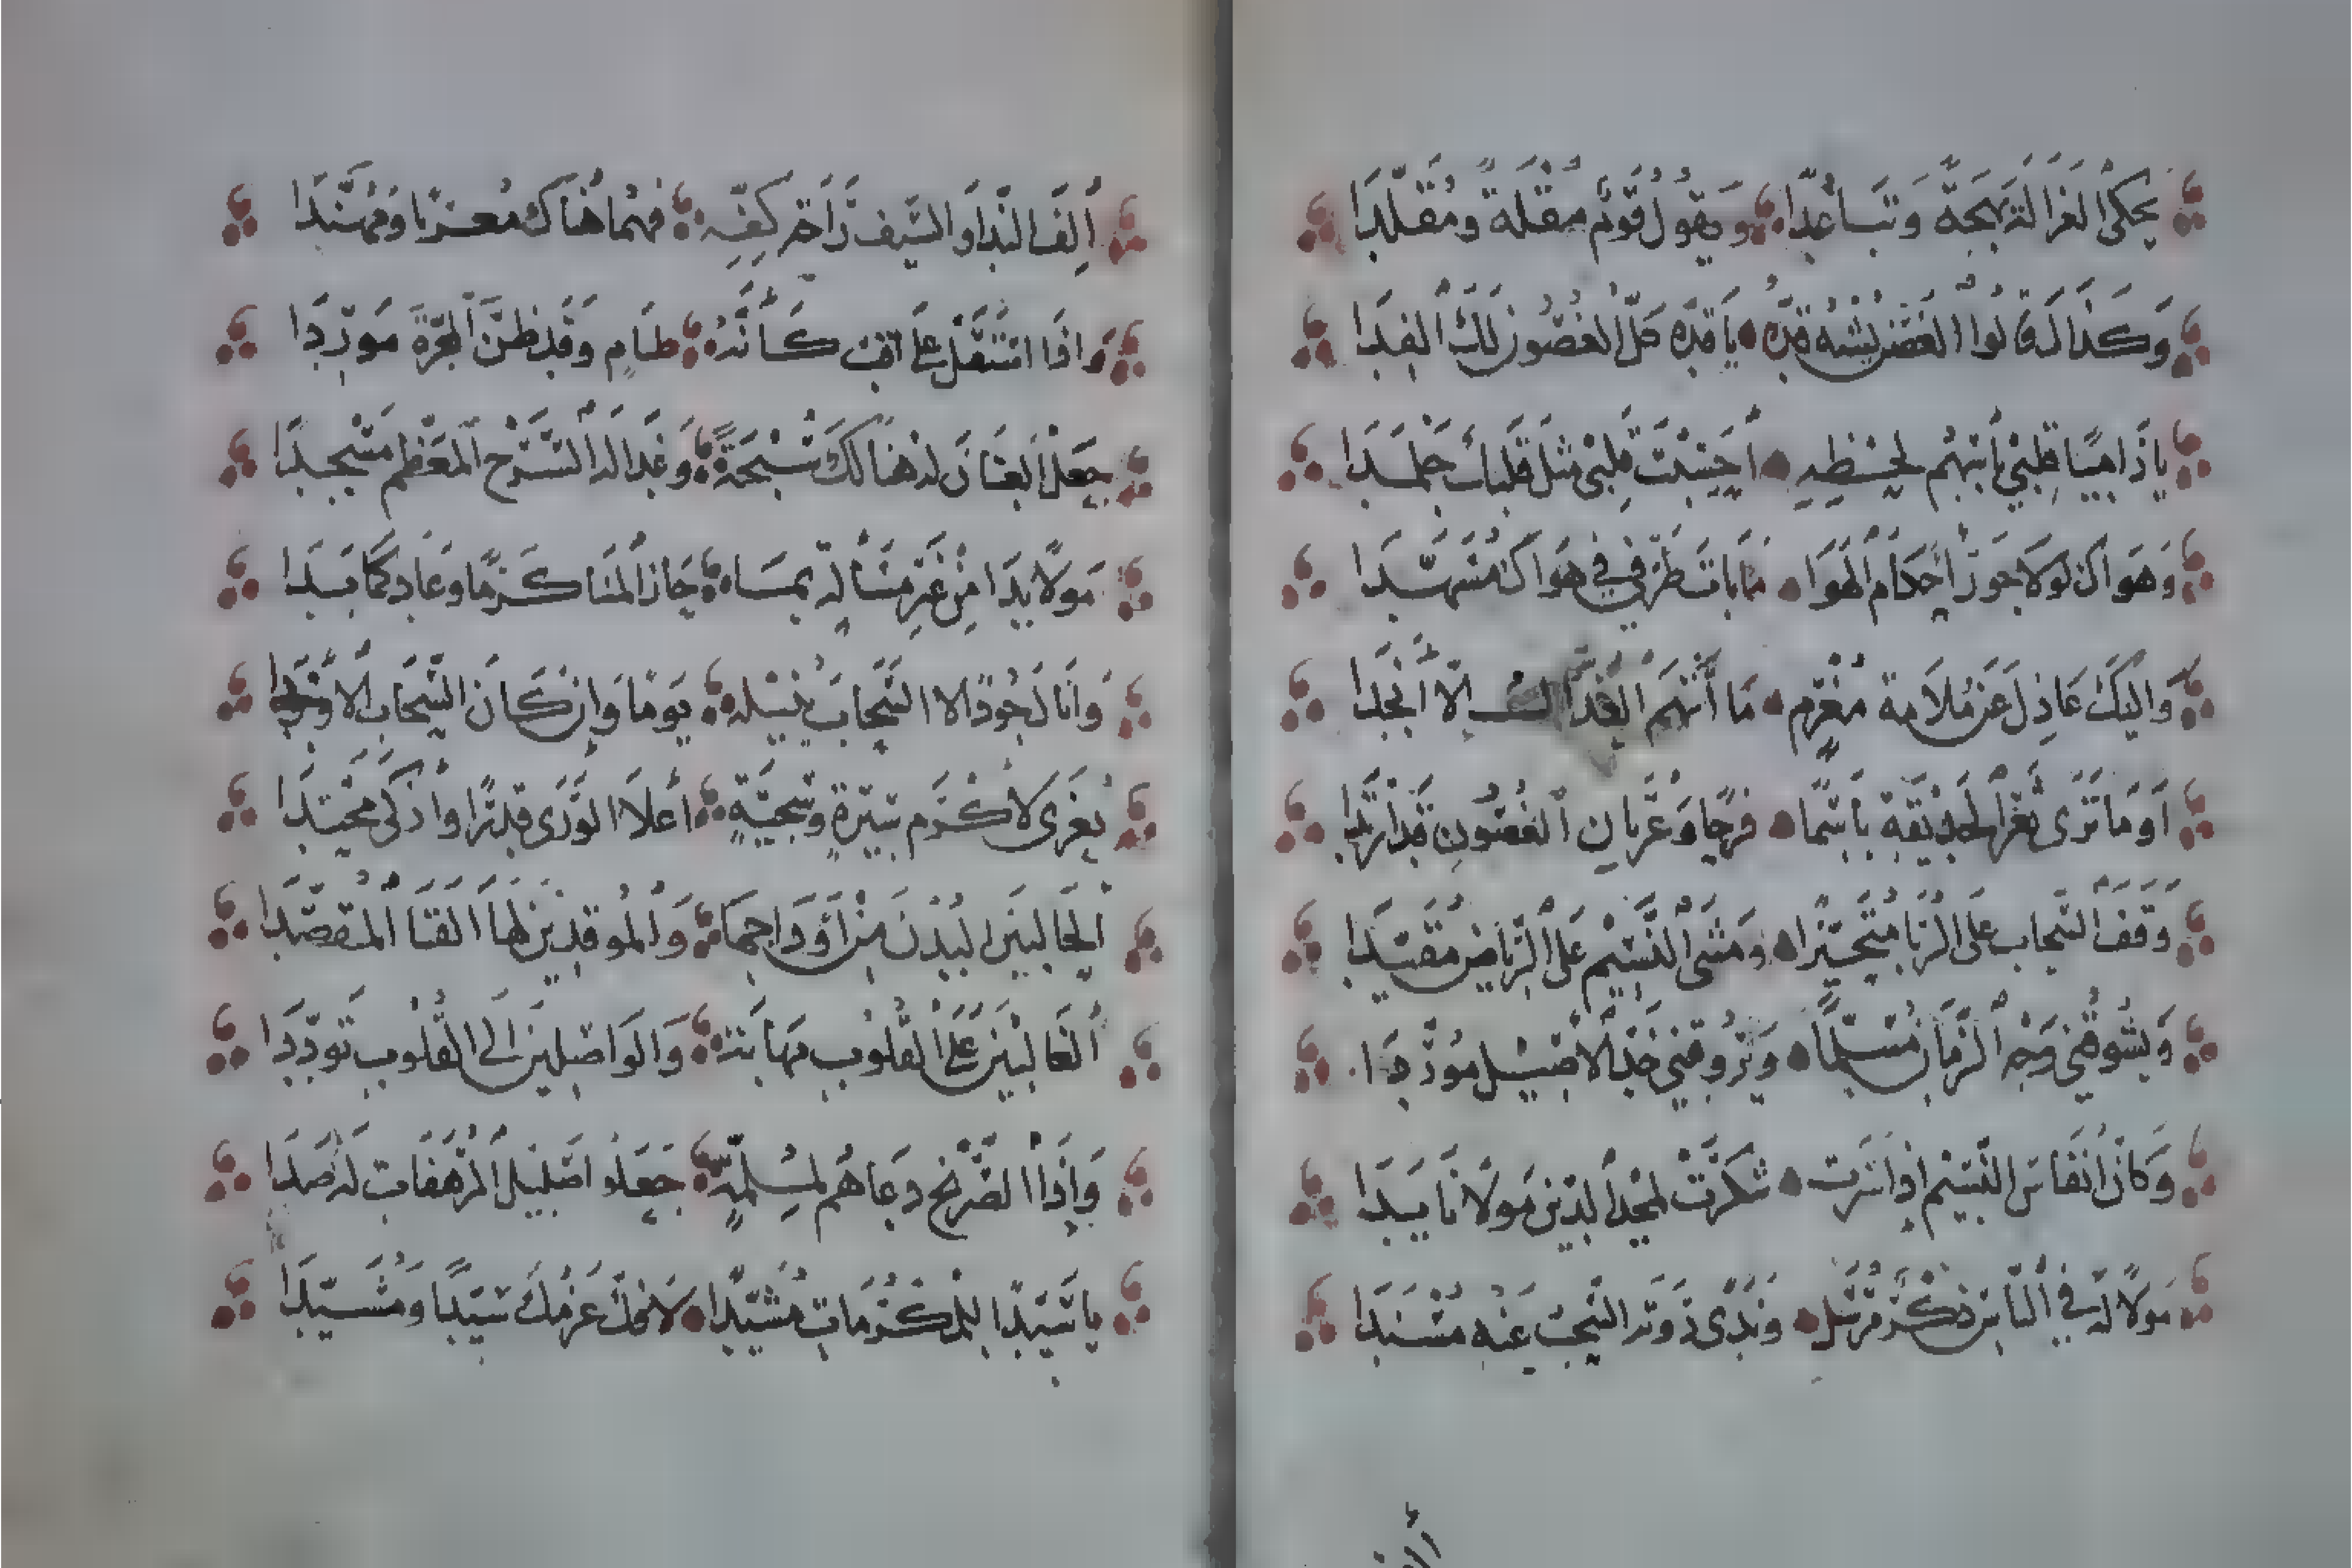 يحكى الغزالة بهجة وتباعدا ويقول قوم مقلة ومقلدا
وكذاك قالوا الغصن يشبه قده يا قده كل الغصون لك الفدا
يا ذاميا قلبي بأسهم لحظه أحسبت قلبي مثل قلبك جلمدا
وهواك لولا جور أحكام الهوا ما بات طرفي في هواك مسهدا
واليك عاذل عن ملامة مغرم ما أتهم العذال الا أنجدا
أوما ترى ثغر الحديقة باسما فرحا وعريان الغصون قد ارتدا
وقف السحاب على الربا متحيرا ومشى النسيم على الرياض مقيدا
ويشوقني وجه الزمان مسلما ويروقني خد الأصيل موردا
وكان أنفاس النسيم اذا سرت شكرت لمجد الدين مولانا يدا
مولا له في الناس ذكر مرسل وندى روته السحب عنه مسندا
ألف الندا والسيف راحة كفه فهما هناك معربا ومهندا
واذا استقل على أقب كأنه طام وقد ظن المجرة موردا
جعل العنان له هنالك سبحة وغدا له السرج المعظم مسجدا
مولا بدا من غير مسألة بما حاز المنا كرما وعاد كما بدا
وانال جودا لا السحاب ينيله يوما وان كان السحاب الاوجدا
يعزى لأكرم سيرة وسجية أعلا الورى قدرا وأزكى محتدا
الحالبين البدن من أوداجها والموقدين لها القنا المتقصدا
الغالبين على القلوب مهابة والواصلين الى القلوب توددا
واذا الصريخ دعاهم لملمة جعلوا صليل المرهفات له صدا
يا سيدا للمكرمات مشيدا لا فل عزمك سيدا ومشيدا